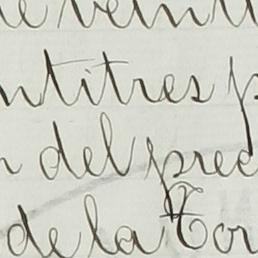 de veint
ntitres p
n del prec
de la Cor